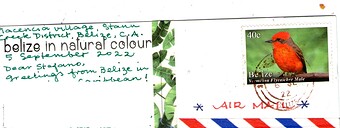 Placencia village, Stann
Creek District, Belize, C.A.
belize in natural colour
5 September 2022
Dear Stefano,
Greetings from Belize in
Caribbean!
40c
Belize
Vermilion Flycatcher Male
22
AIR MAIL